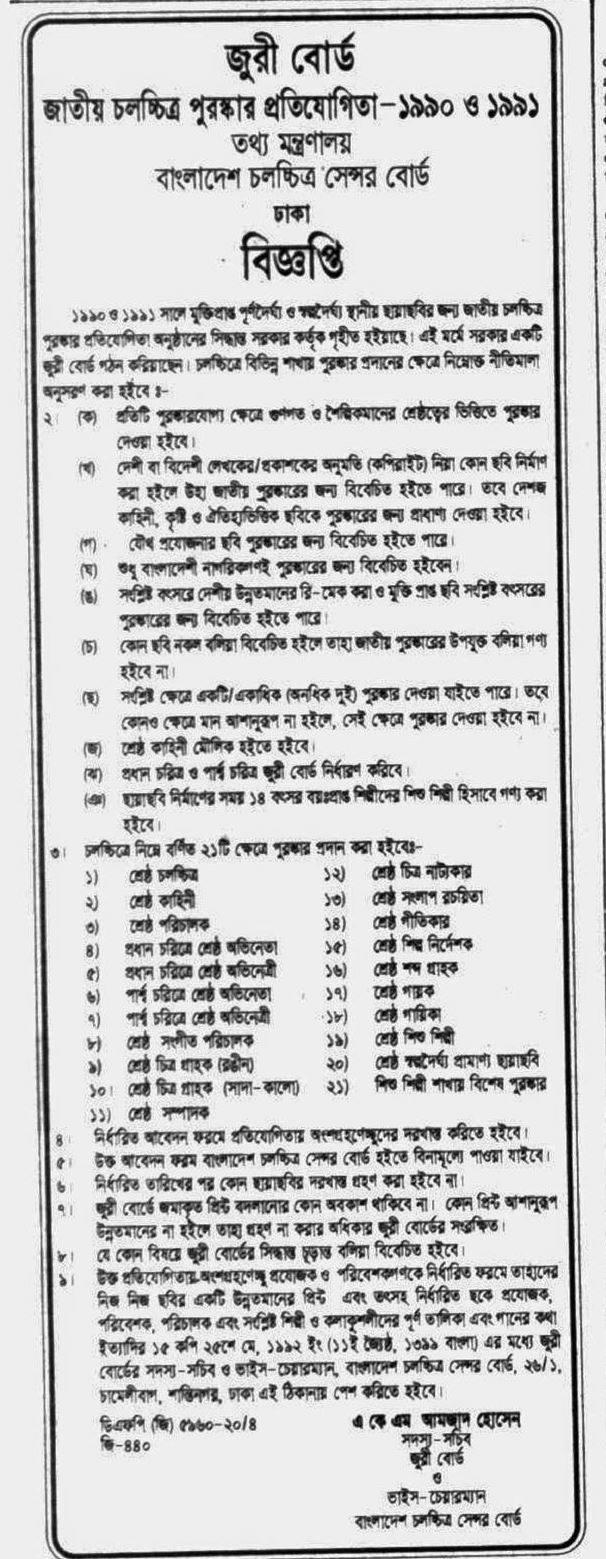 জুরী বোর্ড
জাতীয় চলচ্চিত্র পুরস্কার প্রতিযোগিতা-১৯৯০ ও ১৯৯১
তথ্য মন্ত্রণালয়
বাংলাদেশ চলচ্চিত্র সেন্সর বোর্ড
ঢাকা
বিজ্ঞপ্তি
১৯৯০ ও ১৯৯১ সালে মুক্তিপ্রাপ্ত পূর্ণদৈর্ঘ্য ও স্বল্পদৈর্ঘ্য স্থানীয় ছায়াছবির জন্য জাতীয় চলচ্চিত্র
পুরস্কার প্রতিযোগিতা অনুষ্ঠানের সিদ্ধান্ত সরকার কর্তৃক গৃহীত হইয়াছে। এই মর্মে সরকার একটি
জুরী বোর্ড গঠন করিয়াছেন। চলচ্চিত্রে বিভিন্ন শাখায় পুরস্কার প্রদানের ক্ষেত্রে নিম্নোক্ত নীতিমালা
অনুসরণ করা হইবে ঃ-
২। (ক) প্রতিটি পুরস্কারযোগ্য ক্ষেত্রে গুণগত ও শৈল্পিকমানের শ্রেষ্ঠত্বের ভিত্তিতে পুরস্কার
দেওয়া হইবে।
(খ) দেশী বা বিদেশী লেখকের/প্রকাশকের অনুমতি (কপিরাইট) নিয়া কোন ছবি নির্মাণ
করা হইলে উহা জাতীয় পুরস্কারের জন্য বিবেচিত হইতে পারে। তবে দেশজ
কাহিনী, কৃষ্টি ও ঐতিহ্যভিত্তিক ছবিকে পুরস্কারের জন্য প্রাধান্য দেওয়া হইবে।
(গ) যৌথ প্রযোজনার ছবি পুরস্কারের জন্য বিবেচিত হইতে পারে।
(ঘ) শুধু বাংলাদেশী নাগরিকগণই পুরস্কারের জন্য বিবেচিত হইবেন।
(ঙ) সংশ্লিষ্ট বৎসরে দেশীয় উন্নতমানের রি-মেক করা ও মুক্তি প্রাপ্ত ছবি সংশ্লিষ্ট বৎসরের
পুরস্কারের জন্য বিবেচিত হইতে পারে।
(চ) কোন ছবি নকল বলিয়া বিবেচিত হইলে তাহা জাতীয় পুরস্কারের উপযুক্ত বলিয়া গণ্য
হইবে না।
(ছ) সংশ্লিষ্ট ক্ষেত্রে একটি/একাধিক (অনধিক দুই) পুরস্কার দেওয়া যাইতে পারে। তবে
কোনও ক্ষেত্রে মান আশানুরূপ না হইলে, সেই ক্ষেত্রে পুরস্কার দেওয়া হইবে না।
(জ) শ্রেষ্ঠ কাহিনী মৌলিক হইতে হইবে।
(ঝ) প্রধান চরিত্র ও পার্শ্ব চরিত্র জুরী বোর্ড নির্ধারণ করিবে।
(ঞ) ছায়াছবি নির্মাণের সময় ১৪ বৎসর বয়ঃপ্রাপ্ত শিল্পীদের শিশু শিল্পী হিসাবে গণ্য করা
হইবে।
৩। চলচ্চিত্রে নিম্নে বর্ণিত ২১টি ক্ষেত্রে পুরস্কার প্রদান করা হইবেঃ-
১) শ্রেষ্ঠ চলচ্চিত্র
২) শ্রেষ্ঠ কাহিনী
৩) শ্রেষ্ঠ পরিচালক
৪) প্রধান চরিত্রে শ্রেষ্ঠ অভিনেতা
৫) প্রধান চরিত্রে শ্রেষ্ঠ অভিনেত্রী
৬) পার্শ্ব চরিত্রে শ্রেষ্ঠ অভিনেতা
৭) পার্শ্ব চরিত্রে শ্রেষ্ঠ অভিনেত্রী
৮) শ্রেষ্ঠ সংগীত পরিচালক
৯) শ্রেষ্ঠ চিত্র গ্রাহক (রঙ্গীন)
১০। শ্রেষ্ঠ চিত্র গ্রাহক (সাদা-কালো)
১১) শ্রেষ্ঠ সম্পাদক
১২) শ্রেষ্ঠ চিত্র নাট্যকার
১৩) শ্রেষ্ঠ সংলাপ রচয়িতা
১৪) শ্রেষ্ঠ গীতিকার
১৫) শ্রেষ্ঠ শিল্প নির্দেশক
১৬) শ্রেষ্ঠ শব্দ গ্রাহক
১৭) শ্রেষ্ঠ গায়ক
১৮) শ্রেষ্ঠ গায়িকা
১৯) শ্রেষ্ঠ শিশু শিল্পী
২০) শ্রেষ্ঠ স্বল্পদৈর্ঘ্য প্রামাণ্য ছায়াছবি
২১) শিশু শিল্পী শাখায় বিশেষ পুরস্কার
৪। নির্ধারিত আবেদন ফরমে প্রতিযোগিতায় অংশগ্রহণেচ্ছুদের দরখাস্ত করিতে হইবে।
৫। উক্ত আবেদন ফরম বাংলাদেশ চলচ্চিত্র সেন্সর বোর্ড হইতে বিনামূল্যে পাওয়া যাইবে।
৬। নির্ধারিত তারিখের পর কোন ছায়াছবির দরখাস্ত গ্রহণ করা হইবে না।
৭। জুরী বোর্ডে জমাকৃত প্রিন্ট বদলানোর কোন অবকাশ থাকিবে না। কোন প্রিন্ট আশানুরূপ
উন্নতমানের না হইলে তাহা গ্রহণ না করার অধিকার জুরী বোর্ডের সংরক্ষিত।
৮। যে কোন বিষয়ে জুরী বোর্ডের সিদ্ধান্ত চূড়ান্ত বলিয়া বিবেচিত হইবে।
৯। উক্ত প্রতিযোগিতায় অংশগ্রহণেচ্ছু প্রযোজক ও পরিবেশকগণকে নির্ধারিত ফরমে তাহাদের
নিজ নিজ ছবির একটি উন্নতমানের প্রিন্ট এবং তৎসহ নির্ধারিত ছকে প্রযোজক,
পরিবেশক, পরিচালক এবং সংশ্লিষ্ট শিল্পী ও কলাকুশলীদের পূর্ণ তালিকা এবং গানের কথা
ইত্যাদির ১৫ কপি ২৫শে মে, ১৯৯২ ইং (১১ই জ্যৈষ্ঠ, ১৩৯৯ বাংলা) এর মধ্যে জুরী
বোর্ডের সদস্য-সচিব ও ভাইস-চেয়ারম্যান, বাংলাদেশ চলচ্চিত্র সেন্সর বোর্ড, ২৬/১,
চামেলীবাগ, শান্তিনগর, ঢাকা এই ঠিকানায় পেশ করিতে হইবে।
ডিএফপি (জি) ৫৯৬০-২০/৪
জি-৪৪০
এ কে এম আমজাদ হোসেন
সদস্য-সচিব
জুরী বোর্ড
ও
ভাইস-চেয়ারম্যান
বাংলাদেশ চলচ্চিত্র সেন্সর বোর্ড